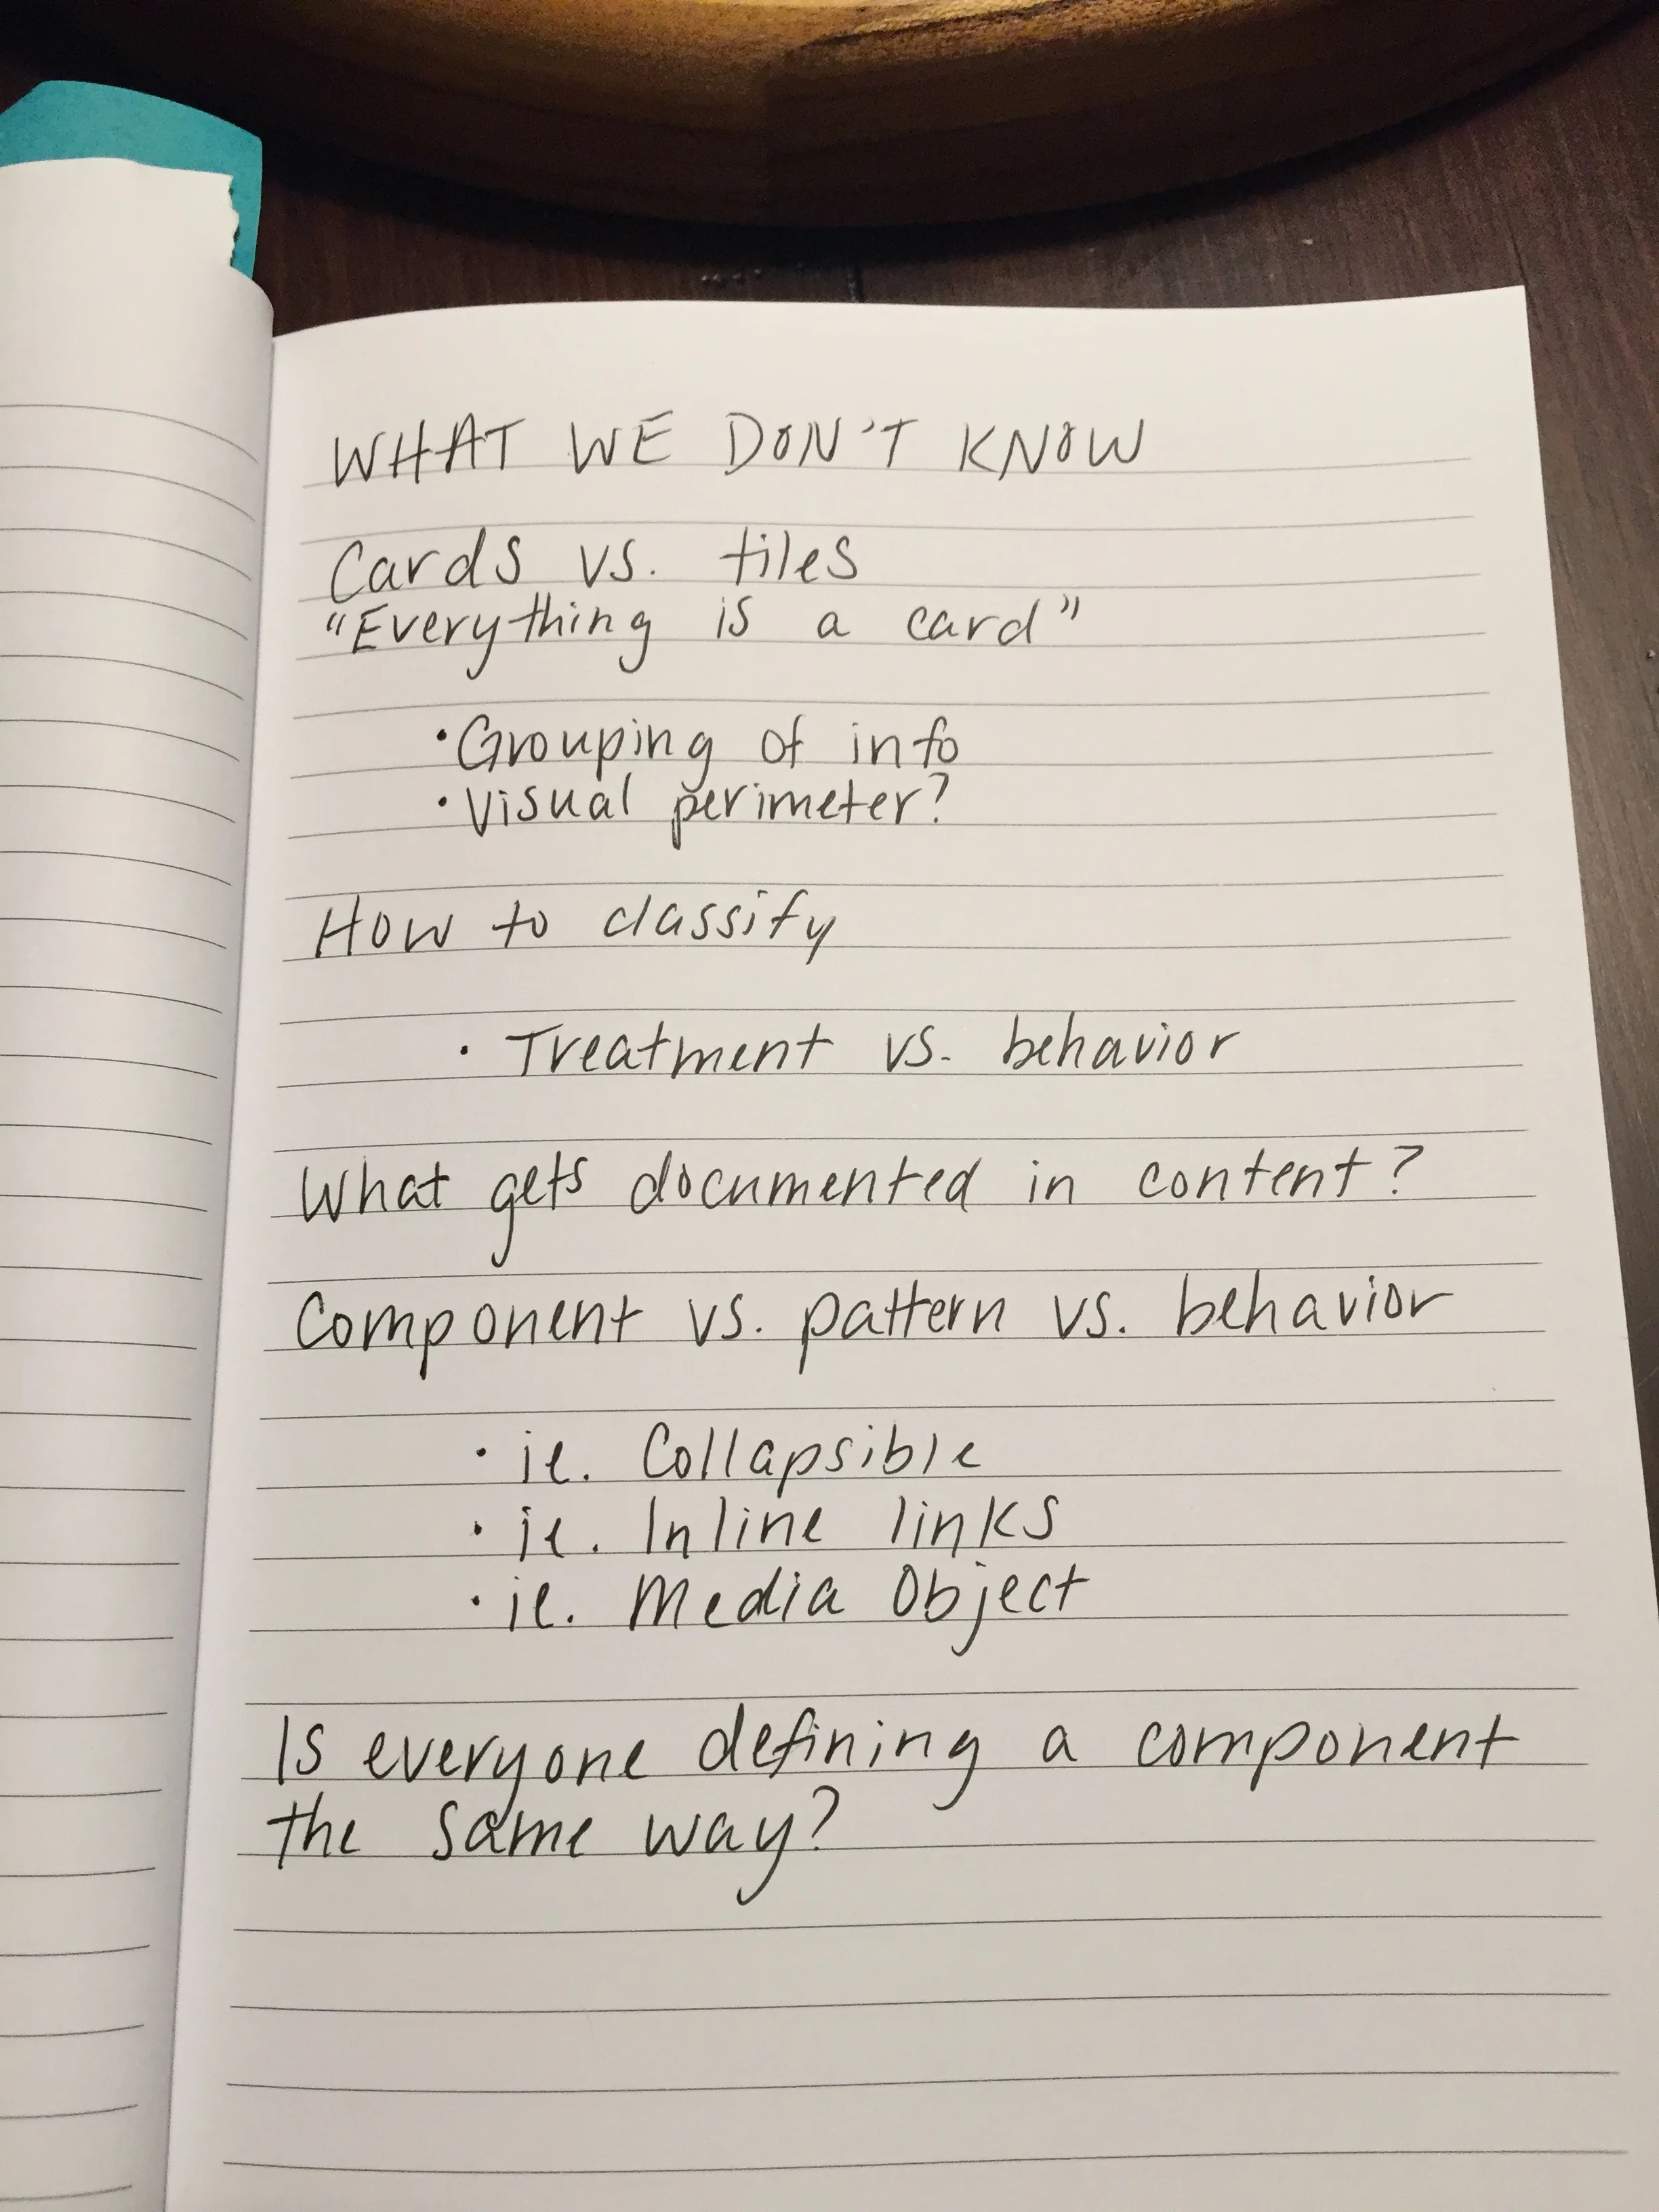 WHAT WE DON'T KNOW
Cards vs. tiles
"Everything is a card"
• Grouping of info
• Visual perimeter?
How to classify
• Treatment vs. behavior
What gets documented in content?
Component vs. pattern vs. behavior
• ie. Collapsible
• ie. Inline links
• ie. Media Object
Is everyone defining a component
the same way?